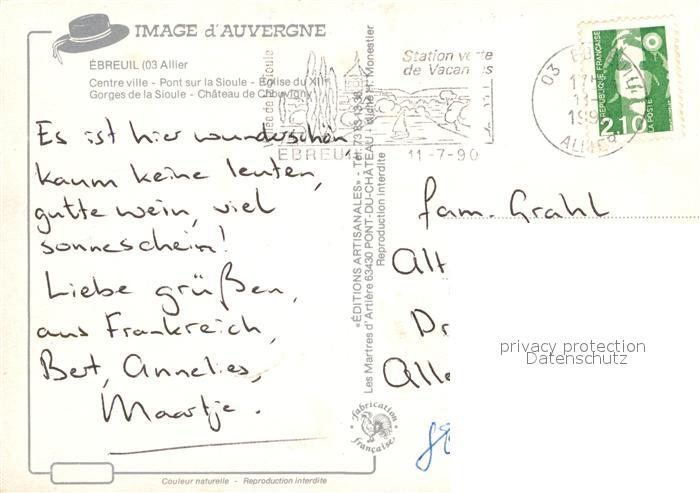 IMAGE d'AUVERGNE
ÉBREUIL (03 Allier
Centre ville - Pont sur la Sioule - Église du XIIe
Gorges de la Sioule - Château de Chouvigny
Es ist hier wunderschön
kaum keine leuten,
gutte wein, viel
sonneschein!
Liebe grüßen,
aus Frankreich,
Bert, Annelies,
Maartje.
Couleur naturelle - Reproduction interdite
«ÉDITIONS ARTISANALES» - Tél. 73 83
Les Martres d'Artière 63430 PONT-DU-CHÂTEAU - Cliché H. Monestier
Reproduction interdite
Fabrication
française
Station verte
de Vacances
EBREUIL 11-7-90
03
17
11
199
ALLIER
RÉPUBLIQUE FRANÇAISE
2,10
LA POSTE
fam. Grahl
Alt
Dr
Alle
privacy protection
Datenschutz